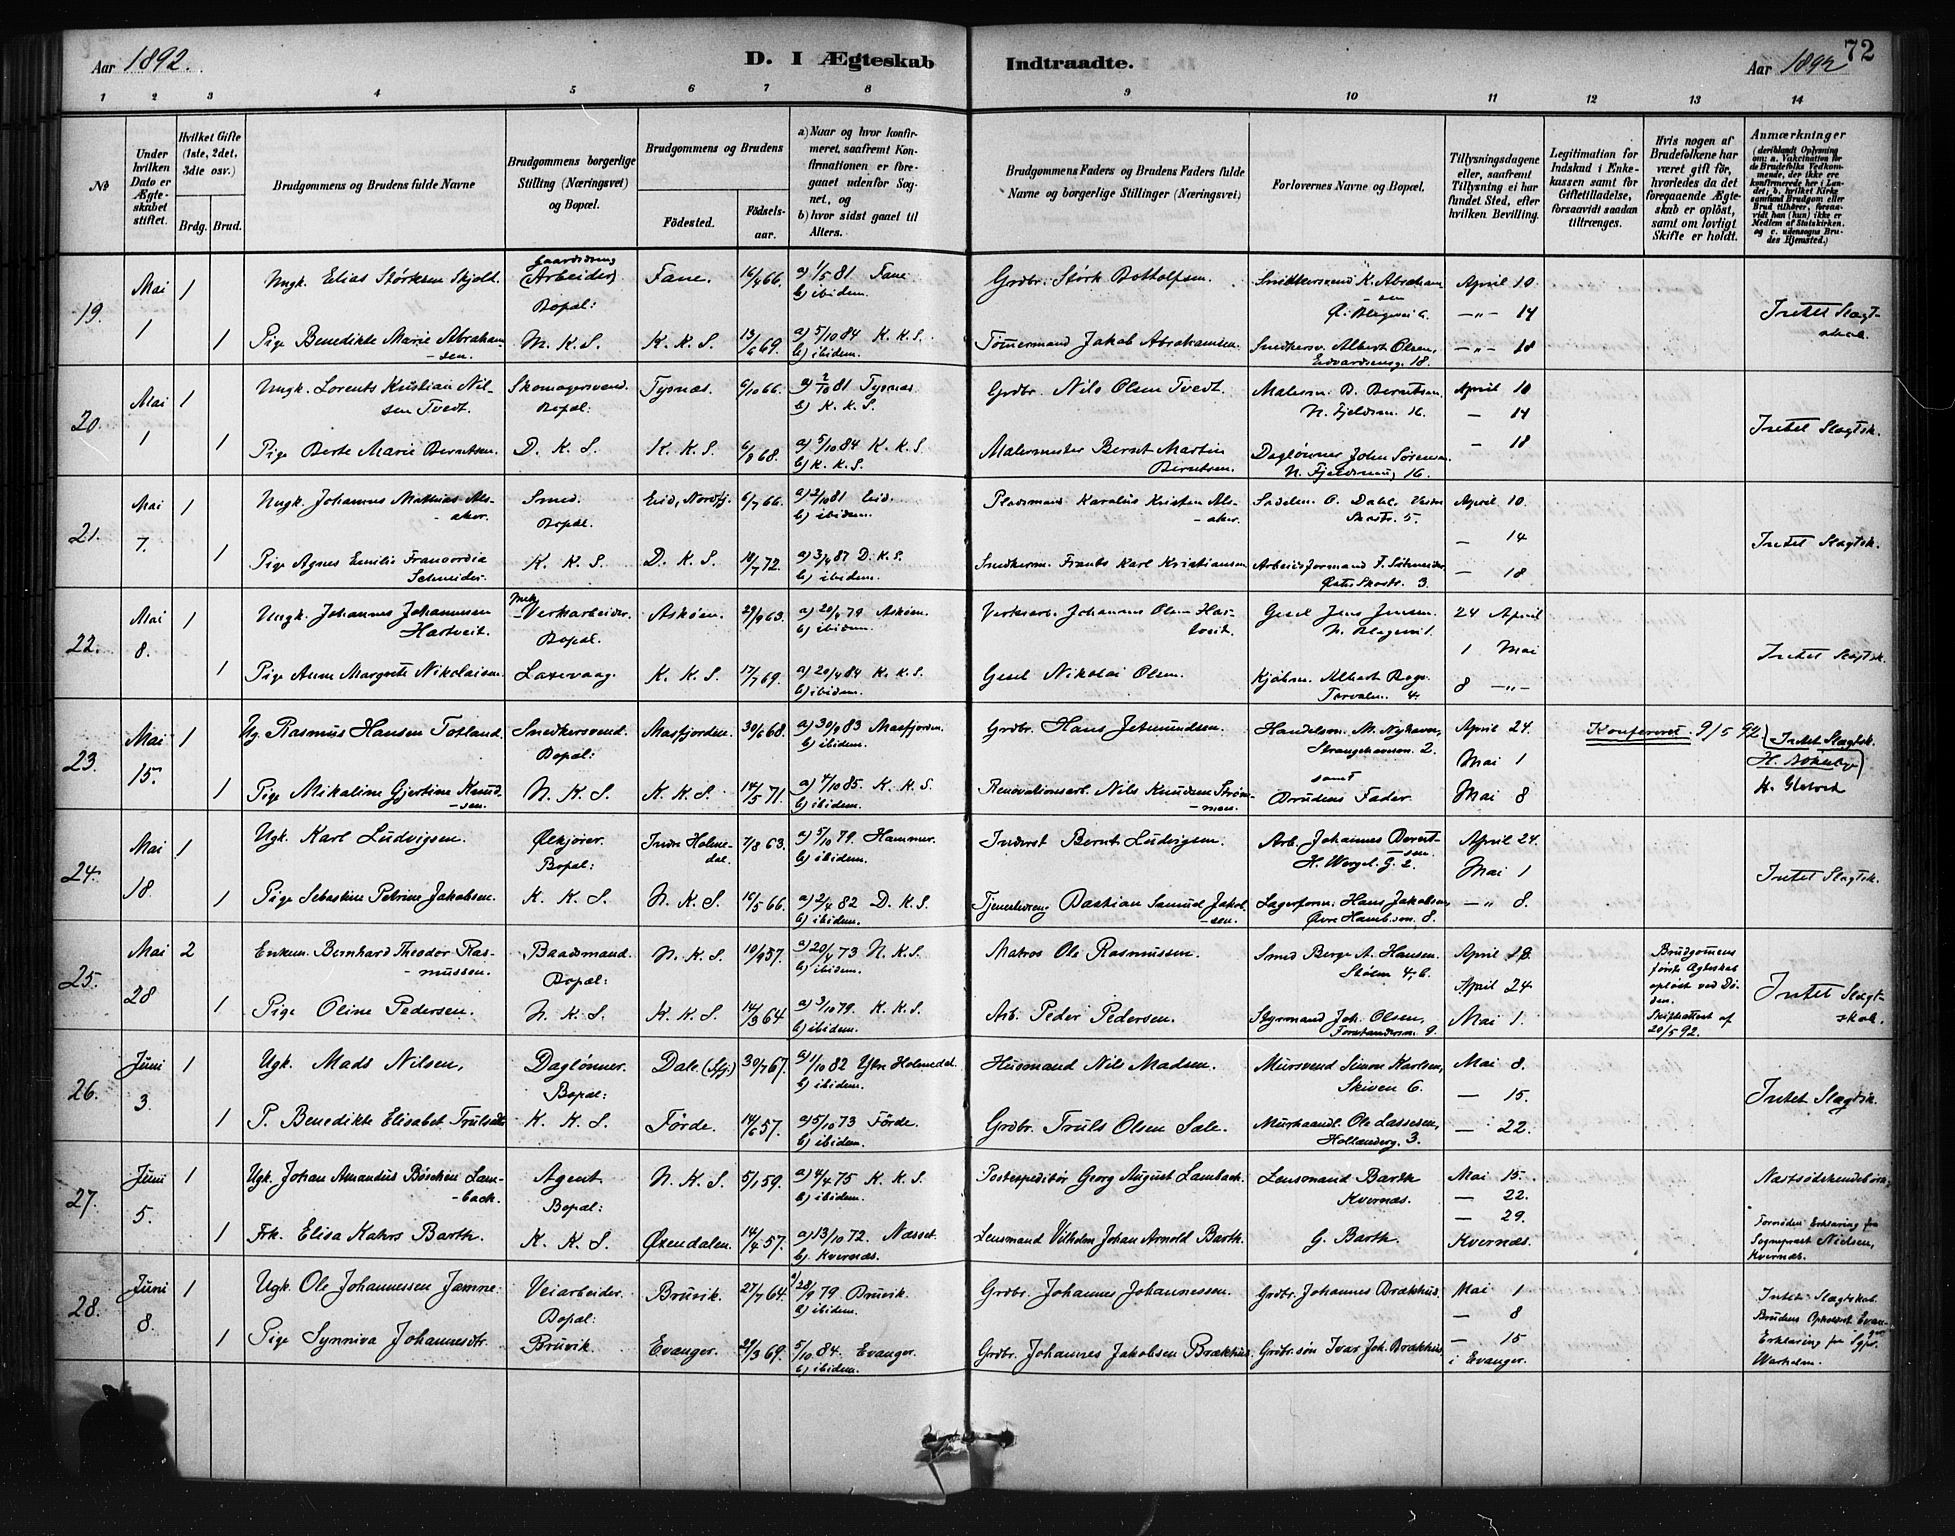 Aar 1892.
D. I Ægteskab Indtraadte.
Aar 1892
72
1 2 3 4 5 6 7 8 9 10 11 12 13 14
No
Under hvilken Dato er Ægteskabet stiftet.
Hvilket Gifte (1ste, 2det, 3die osv.)
Brdg. Brud.
Brudgommens og Brudens fulde Navne
Brudgommens borgerlige Stilling (Næringsvei) og Bopæl.
Brudgommens og Brudens
Fødested.
Fødselsaar.
a) Naar og hvor konfirmeret, saafremt Konfirmationen er foregaaet udenfor Sognet, og
b) hvor sidst gaaet til Alters.
Brudgommens Faders og Brudens Faders fulde Navne og borgerlige Stillinger (Næringsvei)
Forlovernes Navne og Bopæl.
Tillysningsdagene eller, saafremt Tillysning ei har fundet Sted, efter hvilken Bevilling.
Legitimation for Indskud i Enkekassen samt for Giftetilladelse, forsaavidt saadan tiltrænges.
Hvis nogen af Brudefolkene har været gift før, hvorledes da det foregaaende Ægteskab er opløst, samt om lovligt Skifte er holdt.
Anmærkninger
(deriblandt Oplysning om: a. Vaccination for de Brudefolks Vedkommende, der ikke ere konfirmerede her i Landet; b. hvilket Kirkesamfund Brudgom eller Brud tilhører, forsaavidt han (hun) ikke er Medlem af Statskirken. og c. udensogns Brudes Hjemsted.)
19. Mai 1 1 Ungk. Elias Størksen Skjold. Gaardsdreng (Arbeider) Bopæl: Fane. 16/4 66. a) 1/5 81 Fane b) ibidem. Grdbr. Størk Botholfsen. Snedkersvend K. Abrahamsen Ø. Blegevei 6. April 10.
1 Pige Benedikte Marie Abrahamsen. N. K. S. K. K. S. 13/6 69. a) 5/10 84 K. K. S. b) ibidem. Tømermand Jakob Abrahamsen. Snedkersv. Albert Olsen, Edvardsensg. 18. -"- 14 -"- 18 Intet Slægtskab.
20. Mai 1 1 Ungk. Lorents Kristian Nilsen Tvedt. Skomagersvend. Bopæl: Tysnæs. 6/10 66. a) 2/10 81 Tysnæs b) K. K. S. Grdbr. Nils Olsen Tvedt. Malerm. B. Berntsen N. Fjeldsm. 16. April 10 — 14
1 Pige Berte Marie Berntsen. D. K. S. K. K. S. 6/8 68. a) 5/10 84 K. K. S. b) K. K. S. Malermester Bernt Martin Berntsen. Daglønner John Sørensen N. Fjeldsmug 16. — 18 Intet Slægtsk.
21. Mai 7. 1 Ungk. Johannes Mathias Alsaker. Smed. Bopæl. Eid, Nordfj. 6/7 66. a) 2/10 81 Eid. b) ibidem. Pladsmand Karolus Kristen Alsaker. Sadelm. O. Dahl, Vestre Skostr. 5. April 10.
1 Pige Agnes Emilie Franordia Schneider. K. K. S. D. K. S. 18/7 72. a) 3/4 87 D. K. S. b) ibidem. Snedkerm. Frants Karl Kristiansen Arbeidsformand F. Schneider Østre Skostr. 3. — 14 — 18 Intet Slægtsk.
22. Mai 8. 1 Ungk. Johannes Johannessen Hartveit. Mek Verkarbeider. Bopæl. Askøen. 29/9 63. a) 20/4 79 Askøen. b) ibidem. Verksarb. Johannes Olsen Hartveit. Gesel Jens Jensen N. Blegevei 1. 24 April
1 Pige Anne Margrete Nikolaisen. Laxevaag. K. K. S. 17/7 69. a) 20/4 84 K. K. S. b) ibidem. Gesel Nikolai Olsen. Kjøbm. Albert Bøgs Torvalm. 4. 1 Mai 8 -"- Intet Slægtsk.
23. Mai 15. 1 Ug. Rasmus Hansen Totland. Snedkersvend. Bopæl: Masfjorden. 30/6 68. a) 30/9 83 Masfjorden b) ibidem. Grdbr. Hans Jetmundsen. Handelsm. M. Nyhavn, Strangehavnen 2. samt April 24. Mai 1 Konfereret 9/5 92. (Intet Slægtsk.
1 Pige Mikaline Gjertine Knudsen. N. K. S. K. K. S. 14/5 71. a) 4/10 85 K. K. S. b) ibidem. Renovationsarb. Nils Knudsen Strømmen. Brudens Fader. Mai 8
24. Mai 18. 1 Ugk. Karl Ludvigsen. Ølkjører. Bopæl: Indre Holmedal. 7/8 63. a) 5/10 79. Hammer. b) ibidem. Inderst Bernt Ludvigsen. Arb. Johannes Berentsen. H. Wergel. G. 2 April 24. Mai 1
1 Pige Sebastine Petrine Jakobsen. K. K. S. N. K. S. 16/5 66. a) 2/4 82 D. K. S. b) ibidem. Tjenerdreng Bastian Samuel Jakobsen. Lagerform. Hans Jakobsen, Øvre Hamb.sm. 8. -"- 8. Intet Slægtsk.
25. Mai 28 2 Enkem. Bernhard Theodor Rasmussen. Baadsmand. Bopæl: N. K. S. 19/9 57. a) 20/4 73 N. K. S. b) ibidem. Matros Ole Rasmussen. Smed Berge A. Hansen. Skolen 4, 6. April 18. April 24 Brudgomens første Ægteskab opløst ved Døden. Skifteattest af 20/5 92.
1 Pige Oline Pedersen. N. K. S. K. K. S. 14/3 64 a) 3/10 79. K. K. S. b) ibidem. Arb. Peder Pedersen. Styrmand Joh. Olsen, Forstandersm. 9. Mai 1. Intet Slægtskab.
26. Juni 3. 1 Ugk. Mads Nilsen, Daglønner. Bopæl: Dale (Sfj.) 30/7 67. a) 1/10 82 Ytre Holmedal. b) ibidem. Husmand Nils Madsen. Mursvend Simon Karlsen, Skiven 6. Mai 8. — 15.
1 P. Benedikte Elisabet Trulsdtr K. K. S. Førde. 14/6 57. a) 5/10 73 Førde. b) ibidem. Grdbr. Truls Olsen Sale. Murhaandl. Ole Lassesen, Hollenderg. 3. — 22. Intet Slægtsk.
27. Juni 5. 1 Ugk. Johan Amandus Böschen Lambach. Agent. Bopæl: N. K. S. 5/1 59. a) 4/4 75 K. K. S. b) ibidem. Postexpeditør Georg August Lambach. Lensmand Barth Kvernæs. Mai 15. — 22. Næstsødskendebørn.
1 Frk. Elisa Kahrs Barth. K. K. S. Øxendalen. 14/4 57. a) 13/10 72. Næsset. b) Kvernæs. Lensmand Vilhelm Johan Arnold Barth. G. Barth. — 29. Kvernæs. Fornøden Erklæring fra Sogneprest Nielsen, Kvernæs.
28. Juni 8. 1 Ugk. Ole Johannessen Jamne. Veiarbeider. Bopæl: Bruvik. 27/7 64. a) 28/9 79 Bruvik. b) ibidem. Grdbr. Johannes Johannessen. Grdbr. Johannes Brækhus. Mai 1 — 8 Intet Slægtskab.
1 Pige Synniva Johannesdtr. Bruvik Evanger. 29/3 69. 5/10 84. Evanger. b) ibidem. Grdbr. Johannes Jakobsen Brækhus. Grdbr.søn Ivar Joh. Brækhus — 15 i Evanger. Brudens Opholdst. Evanger Erklæring fra Sgpr. Warholm.